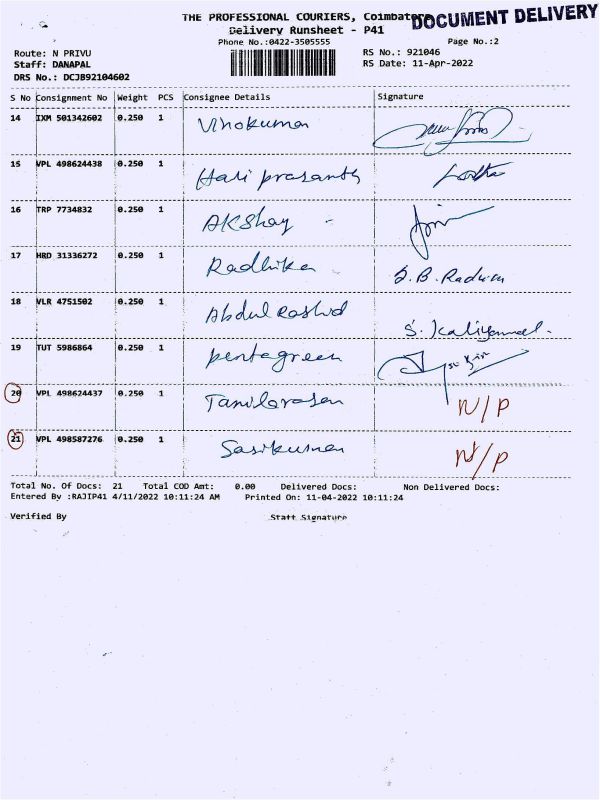 THE PROFESSIONAL COURIERS, Coimbatore
DOCUMENT DELIVERY
Delivery Runsheet - P41
Phone No.:0422-3505555
Page No.:2
Route: N PRIVU
RS No.: 921046
Staff: DANAPAL
RS Date: 11-Apr-2022
DRS No.: DCJB92104602
S No Consignment No Weight PCS Consignee Details Signature
14 IXM 501342602 0.250 1 Vinokumar
15 VPL 498624438 0.250 1 Hari prasanth
16 TRP 7734832 0.250 1 AKShay -
17 HRD 31336272 0.250 1 Radhika
18 VLR 4751502 0.250 1 Abdul Rashid
19 TUT 5986864 0.250 1 pentagreen
20 VPL 498624437 0.250 1 Tamilarasan N/P
21 VPL 498587276 0.250 1 Sasikumar N/P
Total No. Of Docs: 21 Total COD Amt: 0.00 Delivered Docs: Non Delivered Docs:
Entered By :RAJIP41 4/11/2022 10:11:24 AM Printed On: 11-04-2022 10:11:24
Verified By Staff Signature